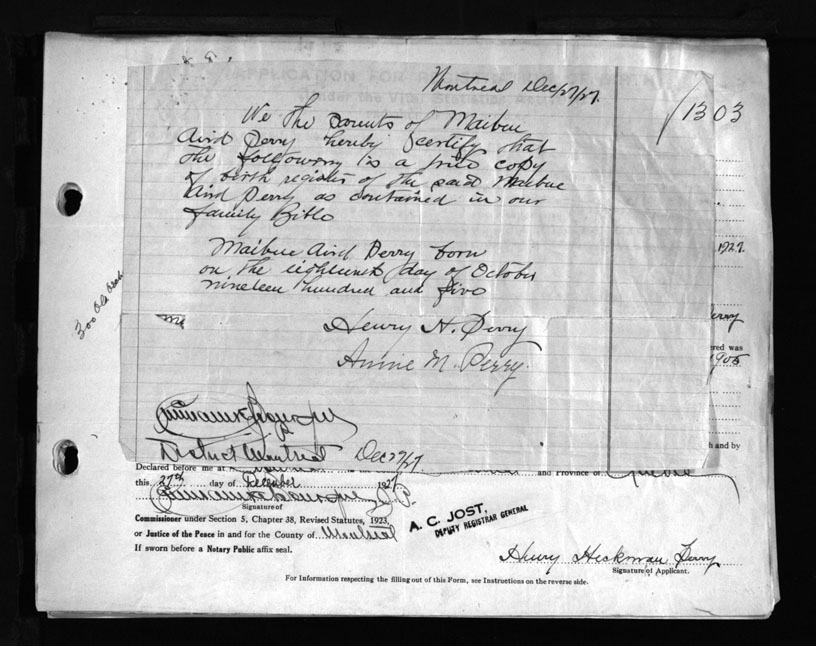 APPLICATION FOR
under the Vital Statistics
Montreal Dec 27/27.
1303
We the parents of Maibue
Aird Perry hereby certify that
the following is a true copy
of birth register of the said Maibue
Aird Perry as contained in our
family Bible
1927.
Maibue Aird Perry born
on the eighteenth day of October
nineteen hundred and five
Henry H. Perry
Annie M. Perry.
erry
ered was
1905
District Montreal Dec 27/27
h and by
Declared before me at and Province of Quebec
this 27th day of December 1927
J. P.
Signature of
Commissioner under Section 5, Chapter 38, Revised Statutes, 1923,
or Justice of the Peace in and for the County of Montreal
If sworn before a Notary Public affix seal.
A. C. JOST,
DEPUTY REGISTRAR GENERAL
Henry Heckman Perry
Signature of Applicant.
For Information respecting the filling out of this Form, see Instructions on the reverse side.